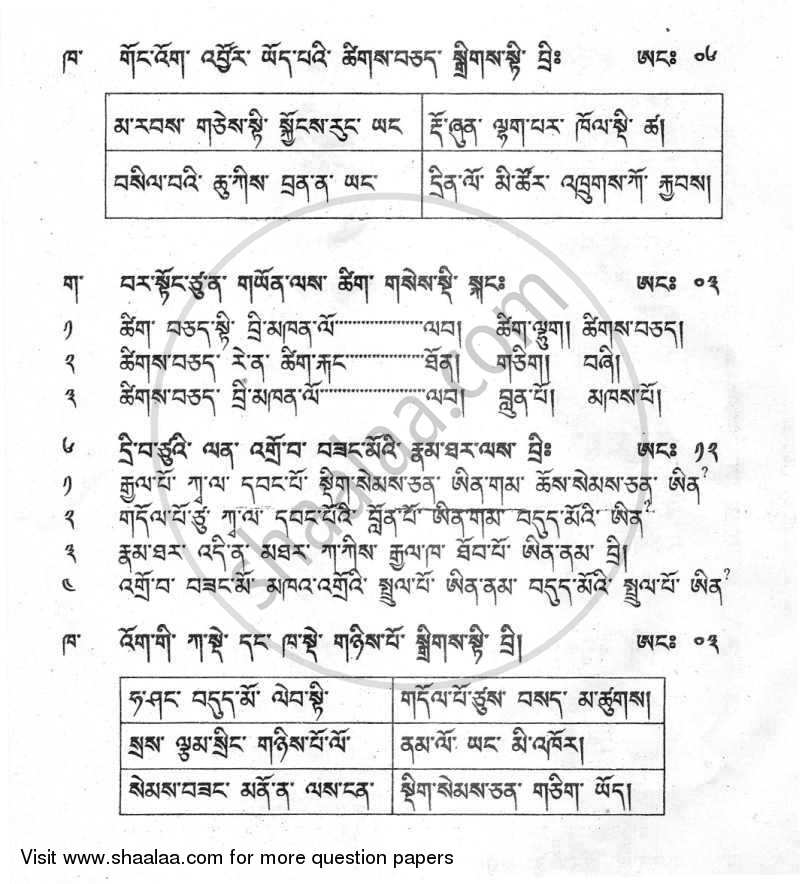 ཁ་ གོང་འོག་ འབྱོར་ ཡོད་པའི་ ཚིགས་བཅད་ སྒྲིགས་སྟི་ བྲིཿ ཨངཿ ༠༦
མ་རབས་ གཅེས་སྟི་ སྐྱོངས་རུང་ ཡང རྡོ་ཞུན་ ལྷག་པར་ ཁོལ་སྡི་ ཚ།
བསིལ་བའི་ ཆུ་ཀིས་ བྲན་ན་ ཡང་ དྲིན་ལོ་ མི་ཚོར་ འཁྲུགས་ཀོ་ རྒྱབས།
ག་ བར་སྟོང་ཙུ་ན་ གཡོན་ལས་ ཚིག་ གསེས་སྡི་ སྐངཿ ཨངཿ ༠༣
༡ ཚིག་ བཅད་སྟི་ བྲི་མཁན་ལོ་........................ལབ། ཚིག་ལྷུག། ཚིགས་བཅད།
༢ ཚིགས་བཅད་ རེ་ན་ ཚིག་རྐང་......................ཐོན། གཅིག། བཞི།
༣ ཚིགས་བཅད་ བྲི་མཁན་ལོ་............................ལབ། བླུན་པོ། མཁས་པོ།
༦ དྲི་བ་ཙུའི་ ལན་ འགྲོ་བ་ བཟང་མོའི་ རྣམ་ཐར་ལས་ བྲིཿ ཨངཿ ༡༢
༡ རྒྱལ་པོ་ ཀཱ་ལ་ དབང་པོ་ སྡིག་སེམས་ཅན་ ཨིན་གམ་ ཆོས་སེམས་ཅན་ ཨིན?
༢ གདོལ་པོ་ཙུ་ ཀཱ་ལ་ དབང་པོའི་ བློན་པོ་ ཨིན་གམ་ བདུད་མོའི་ ཨིན?
༣ རྣམ་ཐར་ འདི་ན་ མཐར་ ཀ་ཀིས་ རྒྱལ་ཁ་ ཐོབ་པོ་ ཨིན་ནམ་ བྲི།
༤ འགྲོ་བ་ བཟང་མོ་ མཁའ་འགྲོའི་ སྤྲུལ་པོ་ ཨིན་ནམ་ བདུད་མོའི་ སྤྲུལ་པོ་ ཨིན?
ཁ་ འོག་གི་ ཀ་སྡེ་ དང་ ཁ་སྡེ་ གཉིས་པོ་ སྒྲིགས་སྟི་ བྲི། ཨངཿ ༠༣
ཧ་ཤང་ བདུད་མོ་ ལེབ་སྟི་ གདོལ་པོ་ཙུས་ བསད་ མ་ཚུགས།
སྲས་ ལྕམ་སྲིང་ གཉིས་པོ་ལོ་ ནམ་ལོ་ ཡང་ མི་འཁོར།
སེམས་བཟང་ མནོ་ན་ ལས་ངན་ སྡིག་སེམས་ཅན་ གཅིག་ ཡོད།
shaalaa.com
Visit www.shaalaa.com for more question papers